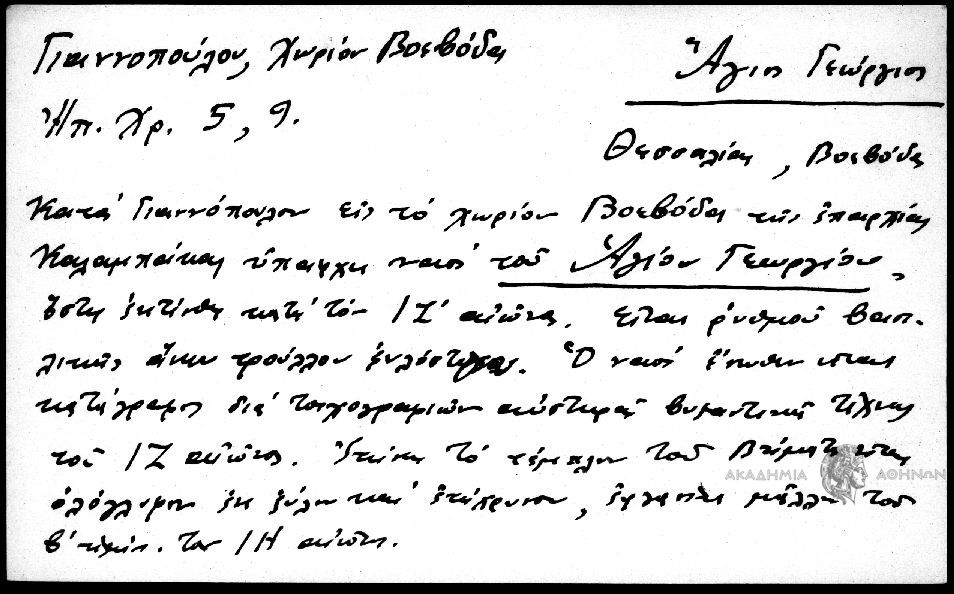 Γιαννοπούλου, Χωρίον Βοεβόδα
Ἅγιος Γεώργιος
Ἠπ. Χρ. 5, 9.
Θεσσαλίας, Βοεβόδα
Κατά Γιαννόπουλον εἰς τό χωρίον Βοεβόδα τῆς ἐπαρχίας
Καλαμπάκας ὑπάρχει ναός τοῦ Ἁγίου Γεωργίου,
ὅστις ἐκτίσθη κατά τόν ΙΖ' αἰῶνα. Εἶναι ῥυθμοῦ βασι-
λικῆς ἄνευ τρούλλου ξυλόστεγος. Ὁ ναός ἔσωθεν εἶναι
κατάγραφος διά τοιχογραφιῶν αὐστηρᾶς βυζαντινῆς τέχνης
τοῦ ΙΖ αἰῶνος. τό τέμπλον τοῦ Βήματος εἶναι
ὁλόγλυφον ἐκ ξύλου καί ἐπίχρυσον, μᾶλλον τοῦ
β' ἡμίσ. του ΙΗ αἰῶνος.
ΑΚΑΔΗΜΙΑ ΑΘΗΝΩΝ